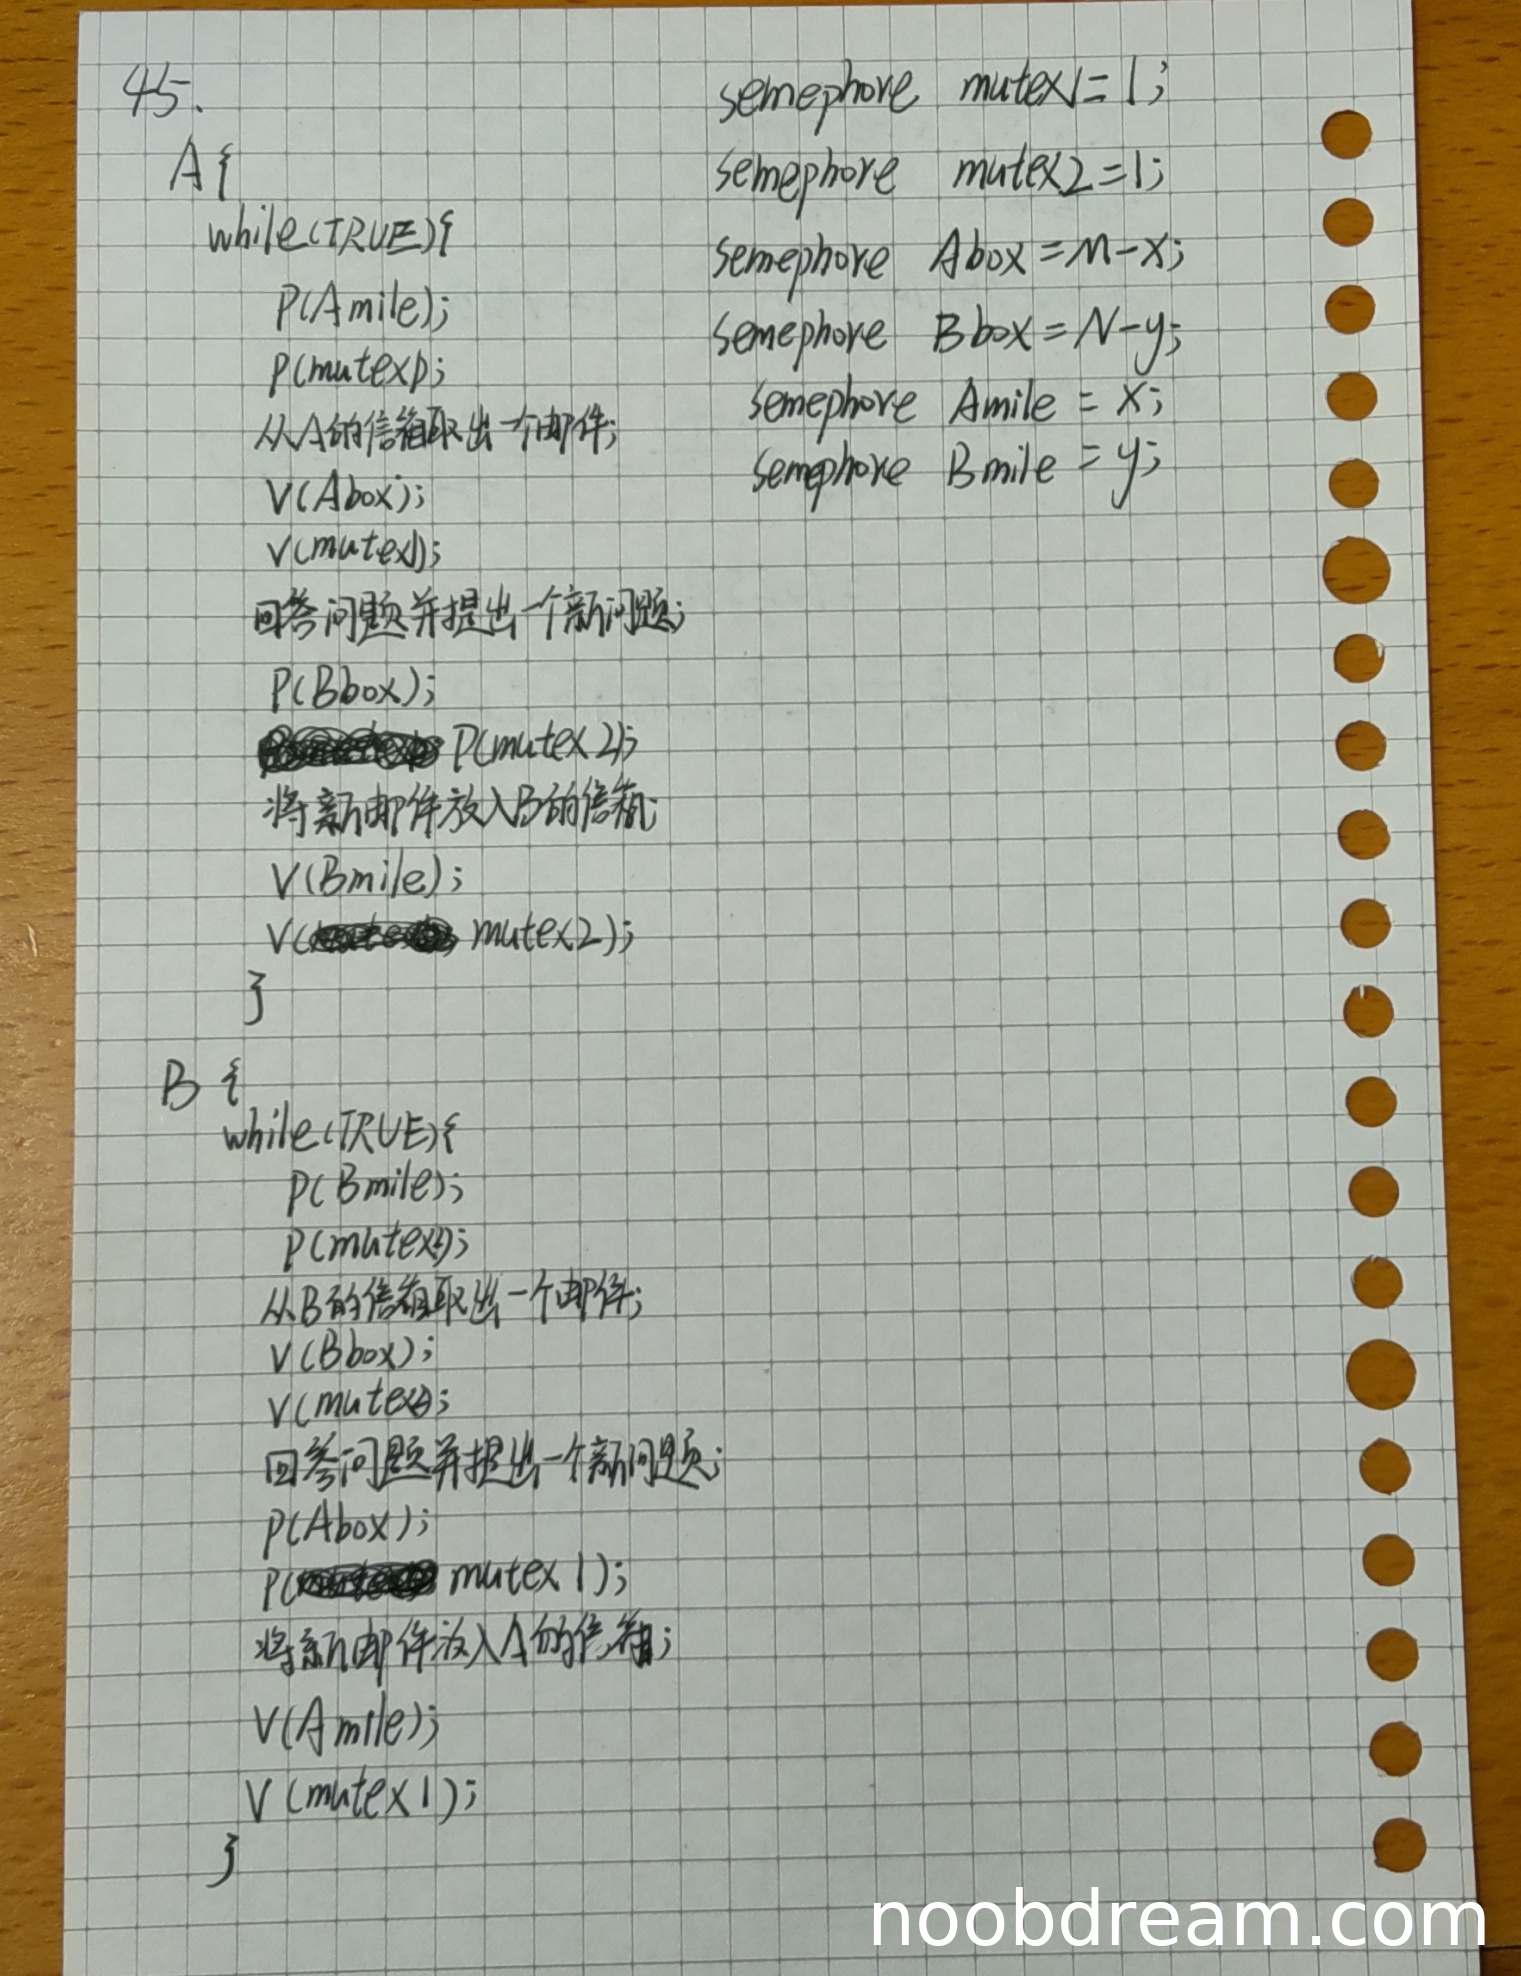 45.
semephore mutex1=1;
semephore mutex2=1;
semephore Abox=M-x;
semephore Bbox=N-y;
semephore Amile = x;
semephore Bmile = y;
A{
while(TRUE){
P(Amile);
P(mutex1);
从A的信箱取出一个邮件;
V(Abox);
V(mutex1);
回答问题并提出一个新问题;
P(Bbox);
P(mutex2);
将新邮件放入B的信箱;
V(Bmile);
V(mutex2);
}
B{
while(TRUE){
P(Bmile);
P(mutex2);
从B的信箱取出一个邮件;
V(Bbox);
V(mutex2);
回答问题并提出一个新问题;
P(Abox);
P(mutex1);
将新邮件放入A的信箱;
V(Amile);
V(mutex1);
}
noobdream.com